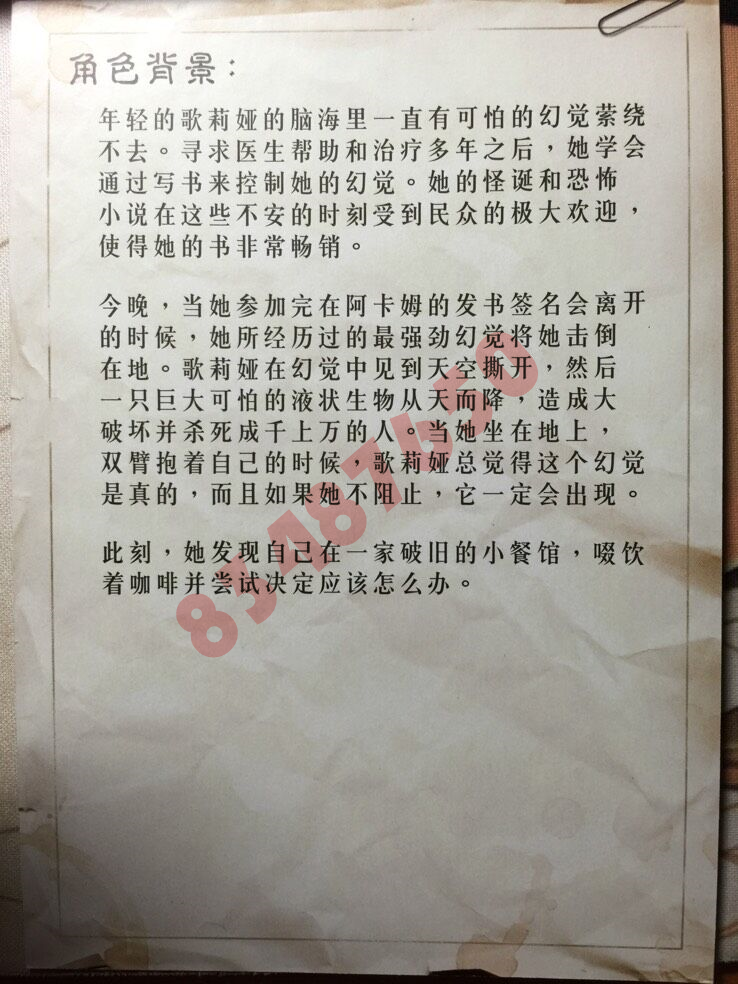 角色背景：
年轻的歌莉娅的脑海里一直有可怕的幻觉萦绕
不去。寻求医生帮助和治疗多年之后，她学会
通过写书来控制她的幻觉。她的怪诞和恐怖
小说在这些不安的时刻受到民众的极大欢迎，
使得她的书非常畅销。
今晚，当她参加完在阿卡姆的发书签名会离开
的时候，她所经历过的最强劲幻觉将她击倒
在地。歌莉娅在幻觉中见到天空撕开，然后
一只巨大可怕的液状生物从天而降，造成大
破坏并杀死成千上万的人。当她坐在地上，
双臂抱着自己的时候，歌莉娅总觉得这个幻觉
是真的，而且如果她不阻止，它一定会出现。
此刻，她发现自己在一家破旧的小餐馆，啜饮
着咖啡并尝试决定应该怎么办。
83487450